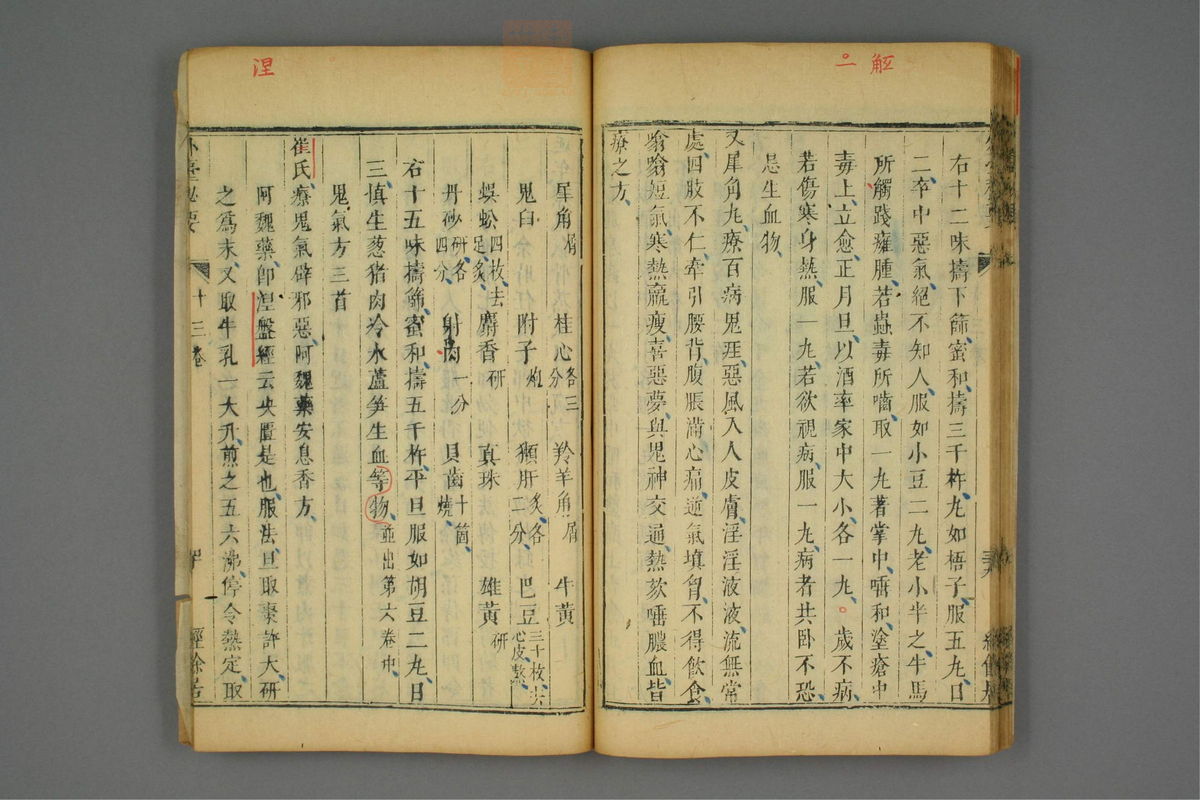 觟
一
右十二味擣下篩蜜和擣三千杵丸如梧子服五丸日
二卒中惡氣絕不知人服如小豆二丸老小半之牛馬
所觸踐癰腫若蟲毒所嚙取一丸著掌中唾和塗瘡中
毒上立愈正月旦以酒率家中大小各一丸一歲不病
若傷寒身熱服一丸若欲視病服一丸病者共卧不恐
忌生血物
又犀角丸療百病鬼疰惡風入人皮膚淫淫液液流無常
處四肢不仁牽引腰背腹脹滿心痛逆氣填胷不得飲食
翕翕短氣寒熱羸瘦喜惡夢與鬼神交通熱欬唾膿血皆
療之方
涅
犀角屑 桂心各三分 羚羊角屑 牛黃
鬼臼 附子炮 獺肝炙各二分 巴豆三十枚去心皮熬
蜈蚣四枚去足炙 麝香研 真珠 雄黃研
丹砂研各四分 射罔一分 貝齒十箇燒
右十五味擣篩蜜和擣五千杵平旦服如胡豆二丸日
三慎生葱猪肉冷水蘆笋生血等物並出第六卷中
鬼氣方三首
崔氏療鬼氣辟邪惡阿魏藥安息香方
阿魏藥卽涅盤經云央匱是也服法旦取棗許大研
之爲末又取牛乳一大升煎之五六沸停令熱定取
外臺祕要
十三卷
經餘居